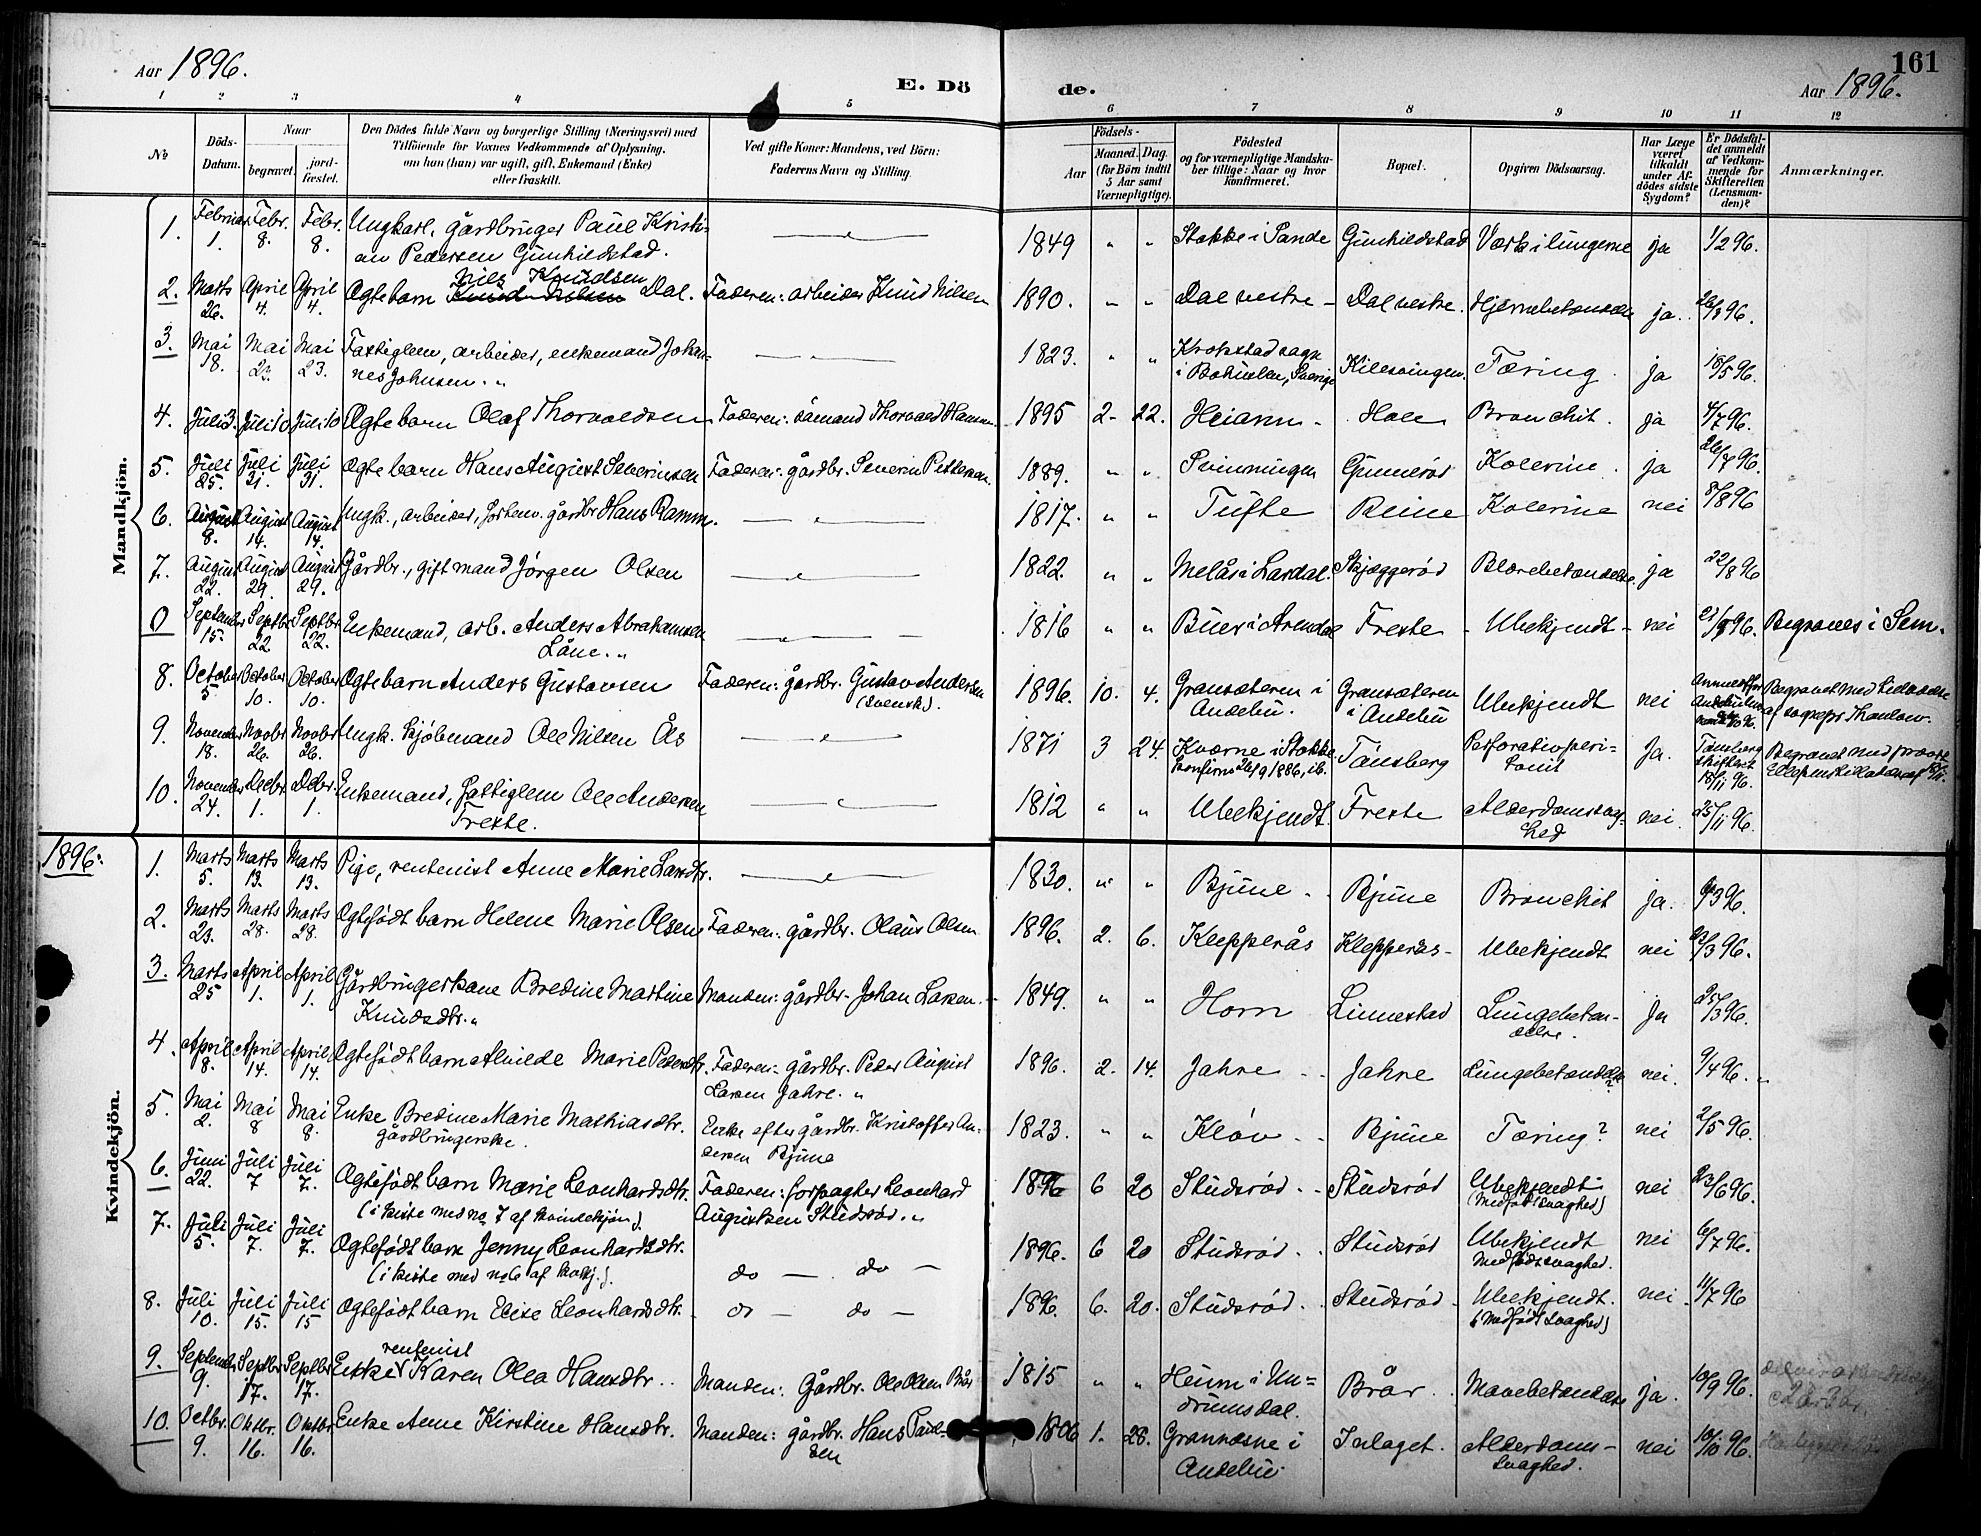 161
Aar 1896.
E. Dö
de.
Aar 1896.
1 2 3 4 5 6 7 8 9 10 11 12
№
Döds-
Datum.
Naar
begravet.
jord-
fæstet.
Den Dödes fulde Navn og borgerlige Stilling (Næringsvei) med
Tilföiende for Voxnes Vedkommende af Oplysning,
om han (hun) var ugift, gift, Enkemand (Enke)
eller fraskilt.
Ved gifte Koner: Mandens, ved Börn:
Faderens Navn og Stilling.
Födsels-
Aar
Maaned. Dag.
(for Börn indtil
5 Aar samt
Værnepligtige).
Födested
og for værnepligtige Mandska-
ber tillige: Naar og hvor
konfirmeret.
Bopæl.
Opgiven Dödsaarsag.
Har Læge
været
tilkaldt
under Af-
dödes sidste
Sygdom?
Er Dödsfal-
det anmeldt
af Vedkom-
mende for
Skifteretten
(Lensman-
den)?
Anmærkninger.
Mandkjön.
1. Februar 1. Febr. 8. Febr. 8. Ungkarl, gårdbruger Paul Kristi-
an Pedersen Gunhildstad. 1849 " " Stokke i Sande Gunhildstad Værk i lungerne ja 1/2 96.
2. Marts 26. April 4. April 4. Ægte barn Nils Knudsen Dal. Faderen: arbeider Knud Nilsen 1890. " " Dal vestre - Dal vestre. Hjernebetændelse ja. 26/3 96.
3. Mai 18. Mai 23. Mai 23. Fattiglem, arbeider, enkemand Johan-
nes Johnsen. " 1823. " " Krokstad sogn
i Bohuslen, Sverige Kilesvingen. Tæring. ja 18/5 96.
4. Juli 3. Juli 10 Juli 10 Ægte barn Olaf Thorvaldsen Faderen: sømand Thorvald Hansen. 1895 2- 22. Heiann - Hall Bronchit. ja 4/7 96.
5. Juli 25. Juli 31. Juli 31. Ægte barn Hans August Severinsen Faderen: gårdbr. Severin Pettersen. 1889. " " Svinningen Gunnerød Kolerine. ja 26/7 96.
6. August 8. August 14. August 14. Ungk., arbeider, forhenv. gårdbr Hans Ramm. 1817. " " Tufte Reine Kolerine nei 8/8 96
7. August 22. August 29. August 29. Gårdbr., gift mand Jörgen Olsen 1822. " " Melås i Lardal. Skjæggerød Blærebetændelse. ja 22/8 96
0 September 15. Septbr. 22 Septbr. 22. Enkemand, arb. Anders Abrahamsen
Låne. " 1816 " " Buer i Arendal Freste - Ubekjendt - nei 21/9 96. Begraves i Sem.
8. October 5 October 10. October 10. Ægte barn Anders Gustavsen Faderen: gårdbr. Gustav Andersen
(svensk). 1896. 10. 4. Gransæteren i
Andebu. Gransæteren
i Andebu Ubekjendt nei
9. November 18. Novbr. 26. Novbr. 26. Ungk. sjømand Ole Nilsen Ås 1871 3 24. Kværne i Stokke
konfirm. 26/9 1886, ib. Tönsberg Perforativperi-
tonit Ja. Tønsberg
skifteret
18/11 96.
10. November 24. Decbr. 1. Decbr. 1. Enkemand, fattiglem Ole Andersen
Freste. 1812 " " Ubekjendt. Freste Alderdomssvag-
hed nei. 25/11 96.
1896:
Kvindekjön.
1. Marts 5. Marts 13. Marts 13. Pige, rentenist Anne Marie Larsdtr. 1830. " " Bjune - Bjune Bronchit ja.
2. Marts 23. Marts 28. Marts 28. Ægtefödt barn Helene Marie Olsen Faderen: gårdbr. Olaus Olsen 1896. 2. 6. Klepperås Klepperås - Ubekjendt nei 23/3 96.
3. Marts 25 April 1. April 1. Gårdbrugerkone Bredine Martine
Knudsdtr. " Manden: gårdbr. Johan Larsen. 1849. " " Horn Linnestad Lungebetæn-
delse. Ja 25/3 96.
4. April 8. April 14. April 14. Ægtefödt barn Alvilde Marie Pedersdtr. Faderen: gårdbr. Peder August
Larsen Jahre. " 1896. 2. 14. Jahre - Jahre Lungebetændelse? nei. 9/4 96. "
5. Mai 2. Mai 8 Mai 8. Enke Bredine Marie Mathiasdtr.
gårdbrugerske. Enke efter gårdbr. Kristoffer An-
dersen Bjune 1823. " " Kløv - Bjune Tæring? nei 2/5 96.
6. Juni 22. Juli 7 Juli 7. Ægtefödt barn Marie Leonhardsdtr.
(i kiste med no 7 af kvindekjön). Faderen: forpagter Leonhard
Augustsen Studsrød. " 1896 6 20 Studsrød - Studsrød Ubekjendt -
(Medfødt svaghed) nei 22/6 96.
7. Juli 5. Juli 7. Juli 7. Ægtefödt barn Jenny Leonhardsdtr.
(i kiste med no 6 af kvkj.). do — do — 1896. 6 20 Studsrød - Studsrød Ubekjendt
Medfødt svaghed. nei 6/7 96.
8. Juli 10. Juli 15. Juli 15 Ægtefödt barn Elise Leonhardsdtr. do — do — 1896. 6. 20. Studsrød - Studsrød - Ubekjendt.
(Medfødt svaghed) nei. 11/7 96
9. September 9. Septbr. 17. Septbr. 17. Enke rentenist Karen Olea Hansdtr. Manden: Gårdbr. Ole Olsen Brår 1815 " " Heum i Un-
drumsdal. Brår. Mavebetændelse ja. 10/9 96.
10. Octbr. 9. Oktbr. 16. Oktbr. 16. Enke Anne Kirstine Hansdtr. Manden: gårdbr. Hans Paul-
sen 1806 1. 28. Grannesne i
Andebu Inlaget. Alderdoms-
svaghed. nei 10/10 96.